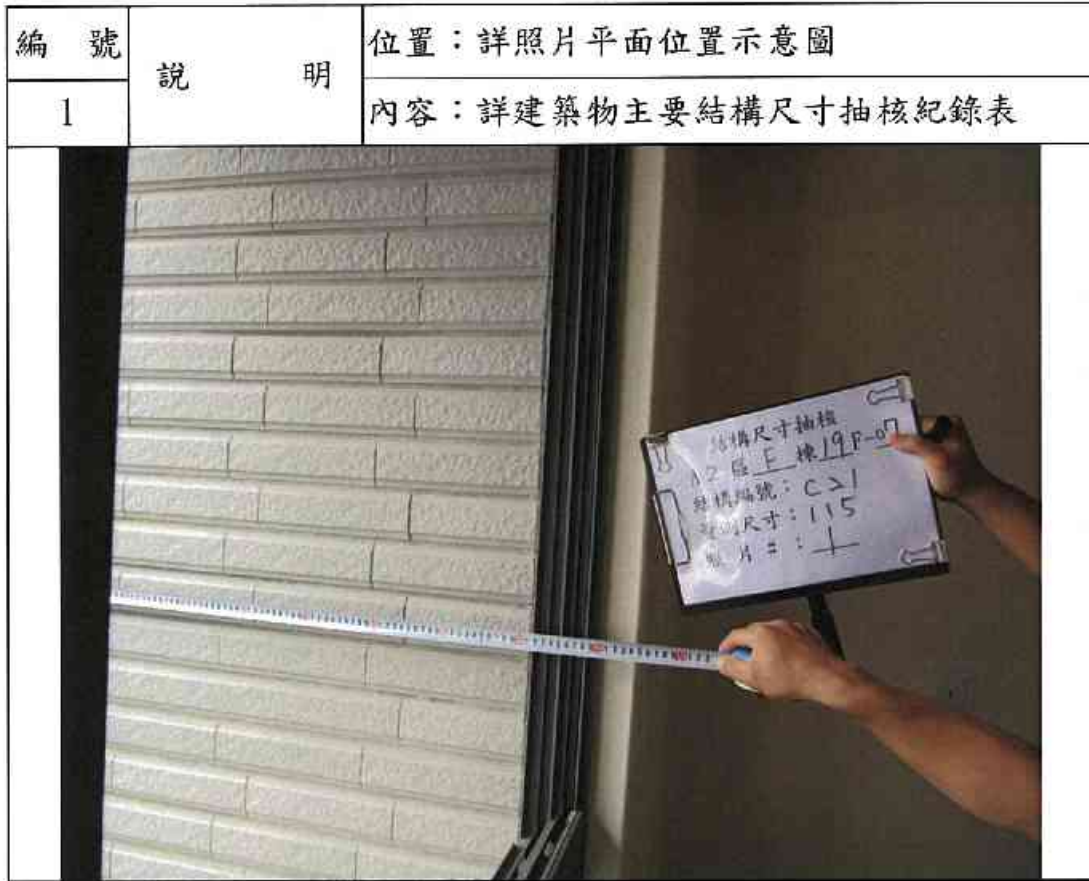 編 號
說 明
位置：詳照片平面位置示意圖
1
內容：詳建築物主要結構尺寸抽核紀錄表
結構尺寸抽核
A2 區 E 棟 19F-07
結構編號：C21
量測尺寸：115
照片#：1